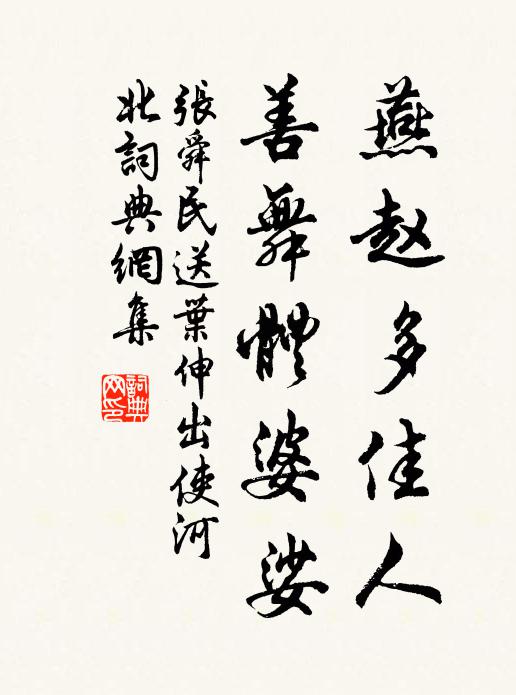 燕赵多佳人
善舞體婆娑
張舜民送葉伸出使河
北詞典網集
詞典网印